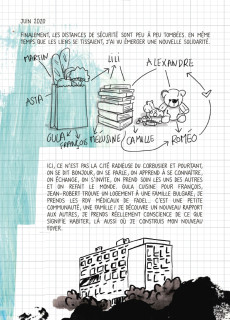 JUIN 2020
FINALEMENT, LES DISTANCES DE SÉCURITÉ SONT PEU À PEU TOMBÉES. EN MÊME
TEMPS QUE LES LIENS SE TISSAIENT, J'AI VU ÉMERGER UNE NOUVELLE SOLIDARITÉ.
MARTIN
LILI
ALEXANDRE
ASIA
OULA
FRANÇOIS
MELUSINE
CAMILLE
ROMÉO
ICI, CE N'EST PAS LA CITÉ RADIEUSE DU CORBUSIER ET POURTANT,
ON SE DIT BONJOUR, ON SE PARLE, ON APPREND À SE CONNAÎTRE,
ON ÉCHANGE, ON S'INVITE, ON PREND SOIN LES UNS DES AUTRES
ET ON REFAIT LE MONDE. OULA CUISINE POUR FRANÇOIS,
JEAN-ROBERT TROUVE UN LOGEMENT À UNE FAMILLE BULGARE, JE
PRENDS LES RDV MÉDICAUX DE FADEL... C'EST UNE PETITE
COMMUNAUTÉ, UNE FAMILLE! JE DÉCOUVRE UN NOUVEAU RAPPORT
AUX AUTRES, JE PRENDS RÉELLEMENT CONSCIENCE DE CE QUE
SIGNIFIE HABITER, LÀ AUSSI OÙ JE CONSTRUIS MON NOUVEAU
FOYER.